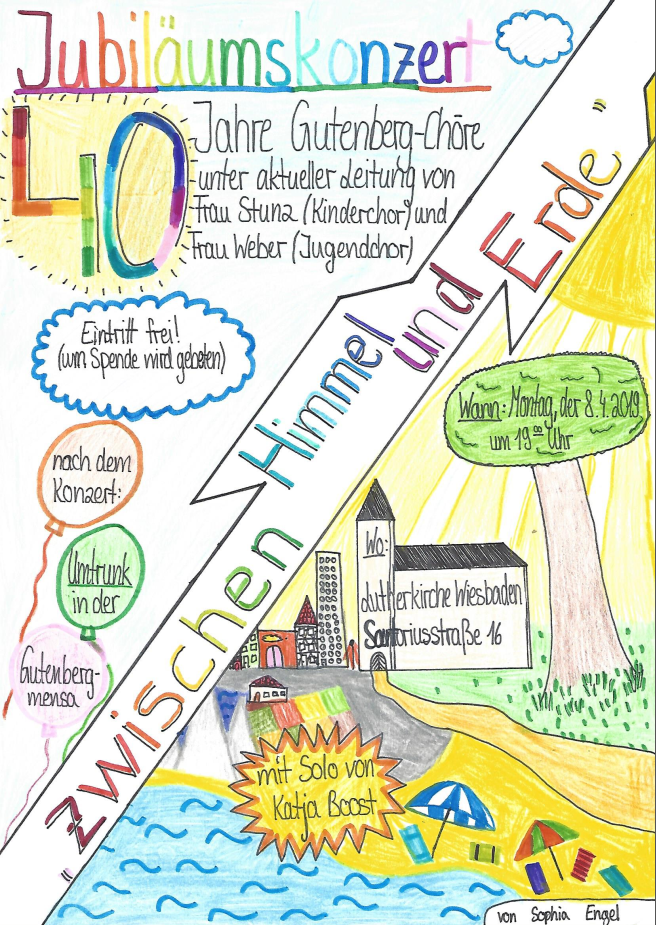 Jubiläumskonzert
40 Jahre Gutenberg-Chöre
unter aktueller Leitung von
Frau Stunz (Kinderchor) und
Frau Weber (Jugendchor)
Eintritt frei!
(um Spende wird gebeten)
"zwischen Himmel und Erde"
Wann: Montag, der 8.4.2019
um 19⁰⁰ Uhr
nach dem
Konzert:
Umtrunk
in der
Gutenberg-
mensa
Wo:
Lutherkirche Wiesbaden
Sartoriusstraße 16
mit Solo von
Katja Boost
von Sophia Engel